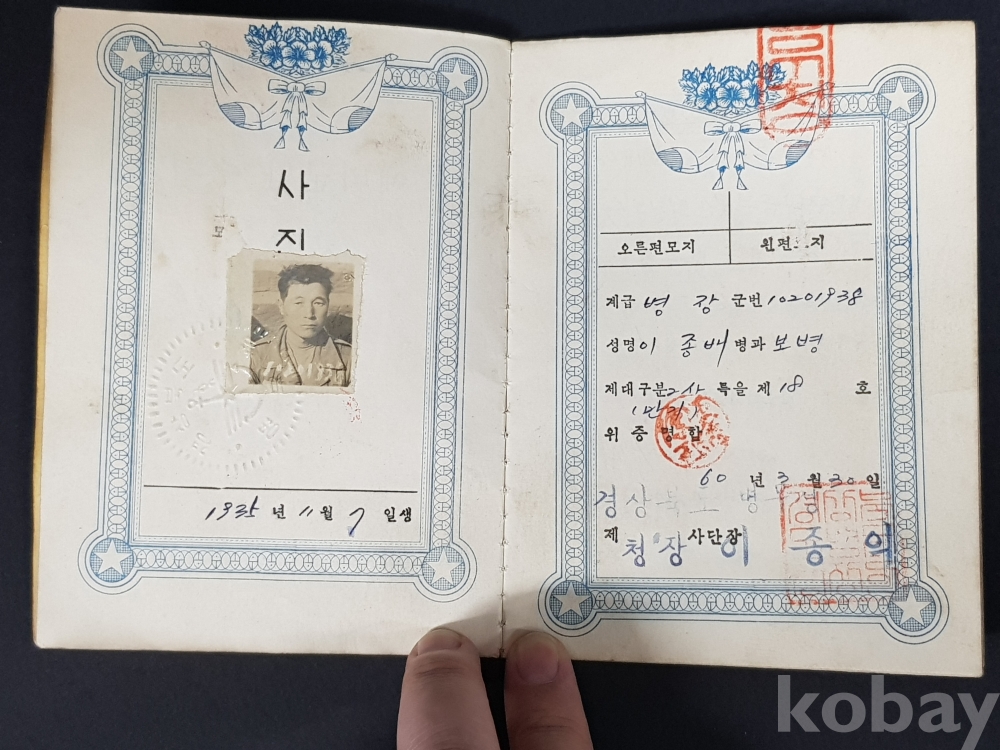 사
진
1935 년 11 월 7 일생
오른편모지 왼편모지
계급 병장 군번 10201938
성명 이종배 병과 보병
제대구분 2사 특을 제 18 호
(만기)
위 증명함
60 년 3 월 30 일
경상북도 병
제 사단장
청장 이종
kobay